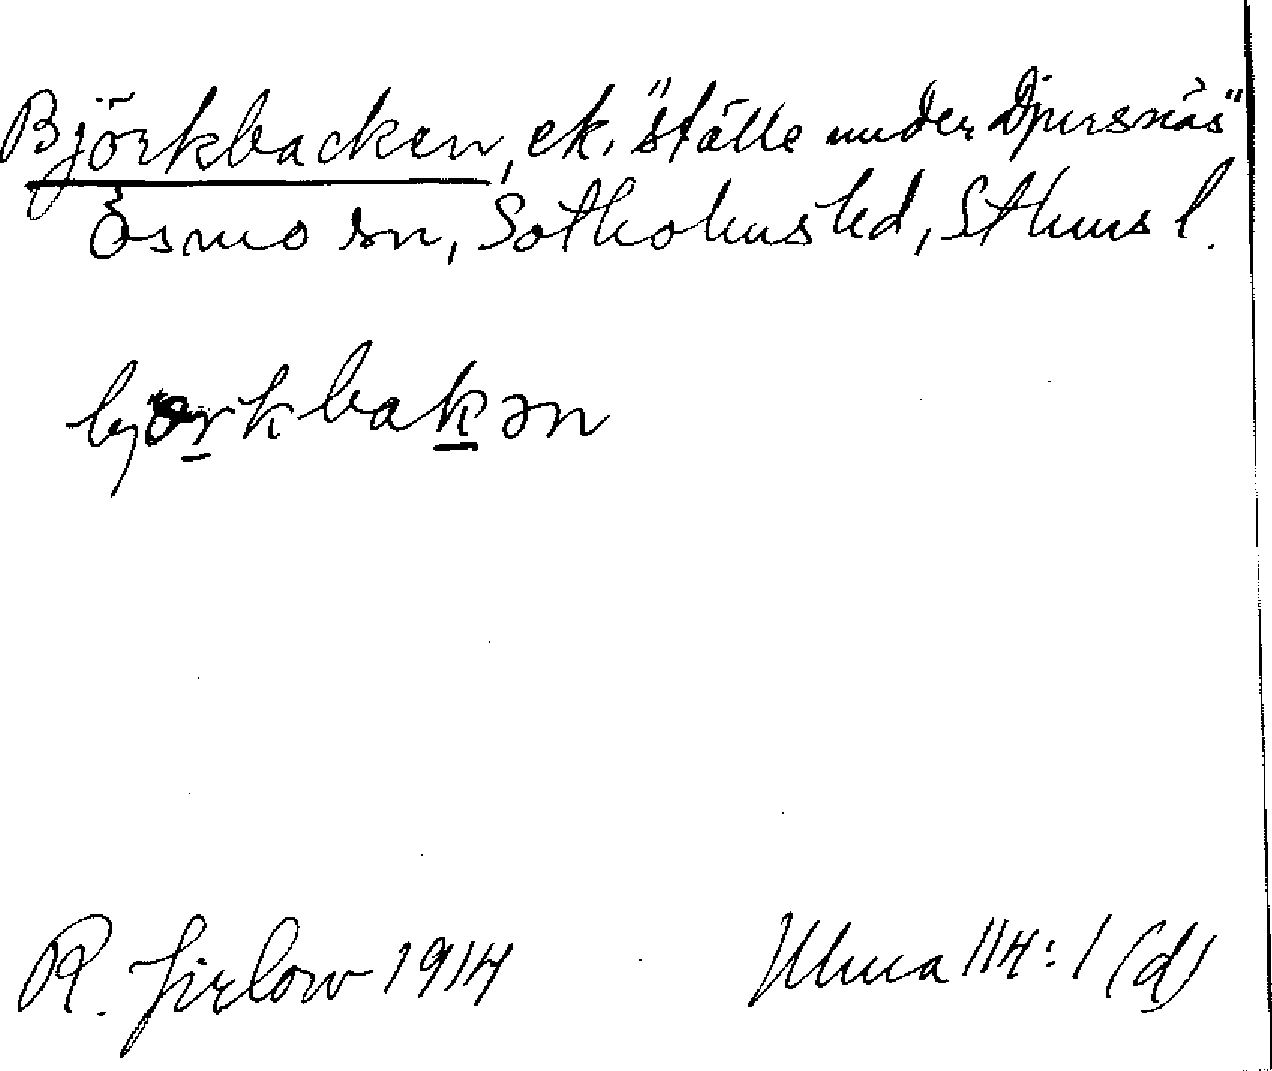 Björkbacken, ek. "ställe under Djursnäs"
Ösmo sn, Sotholms hd, Sthms l.
bjørkbakən
R. Jirlow 1914
Ulma 114:1 (d)